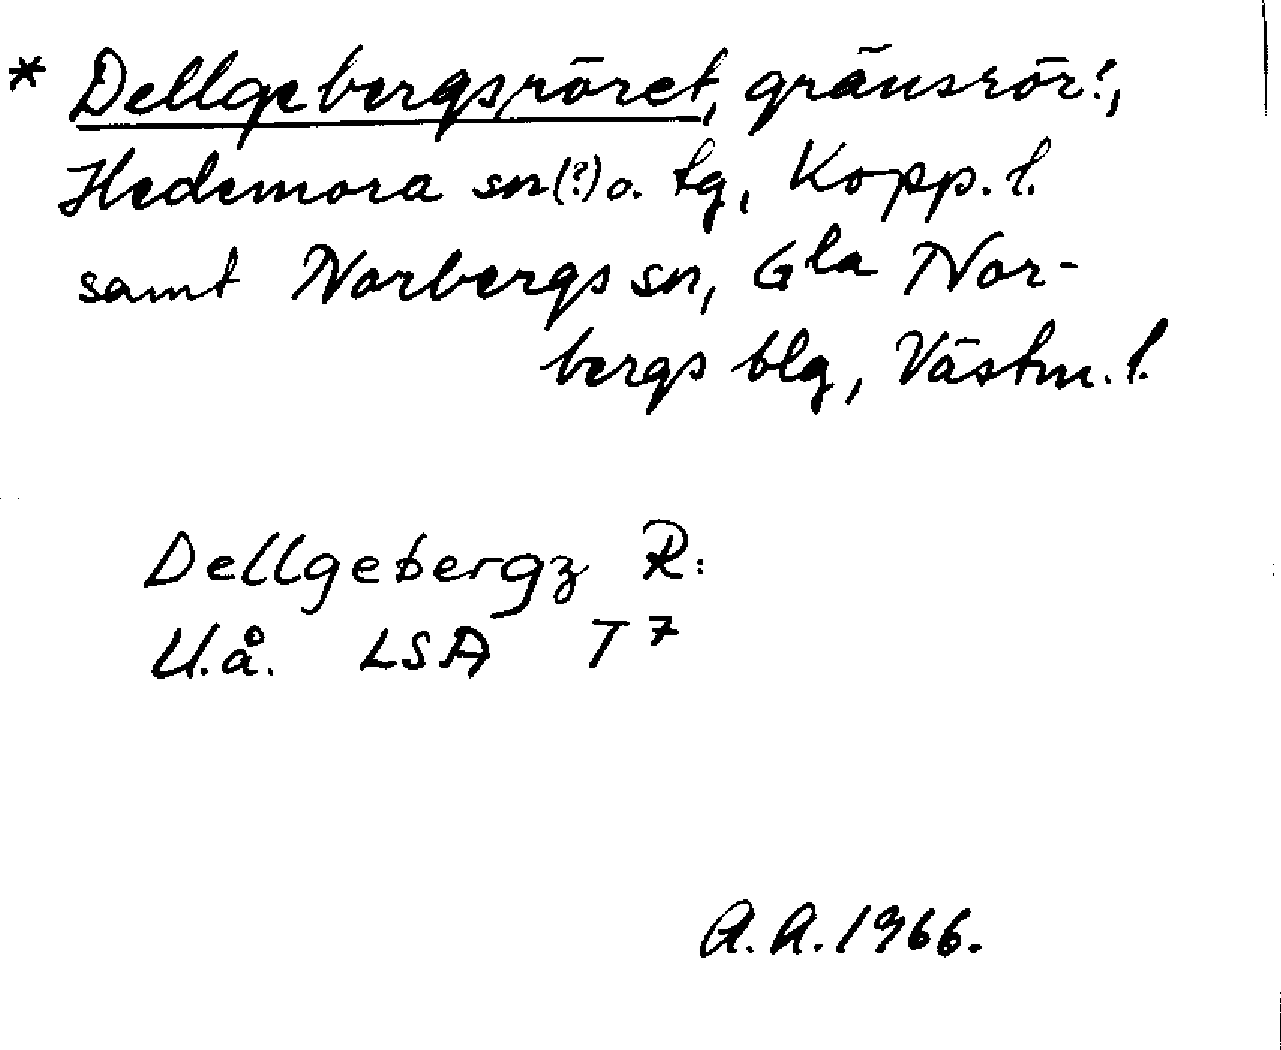 * Dellgebergsröret, gränsrör!,
Hedemora sn(?) o. tg, Kopp. l.
samt Norbergs sn, Gla Nor-
bergs blg, Västm. l.
Dellgebergz R:
U.å. LSA T 7
A.A. 1966.